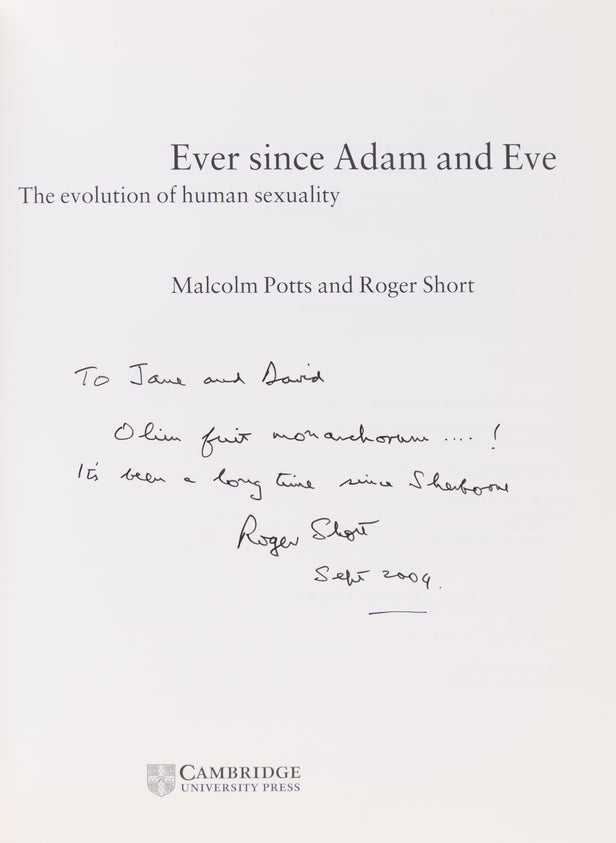 Ever since Adam and Eve
The evolution of human sexuality
Malcolm Potts and Roger Short
To Jane and David
Olim fuit monachorum .... !
It's been a long time since Sherborne
Roger Short
Sept 2004.
CAMBRIDGE
UNIVERSITY PRESS